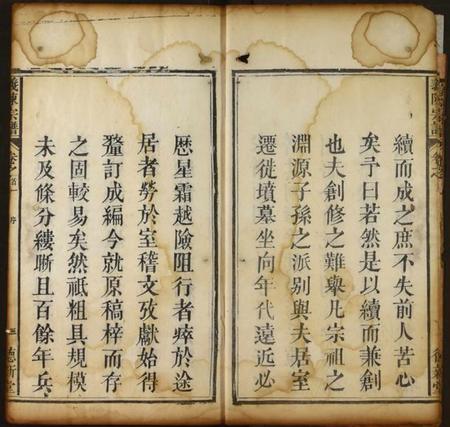 續而成之庶不失前人苦心
矣予曰若然是以續而兼創
也夫創修之難舉凡宗祖之
淵源子孫之派別與夫居室
遷徙墳墓坐向年代遠近必
歷星霜越險阻行者瘁於途
居者勞於室稽文攷獻始得
釐訂成編今就原稿梓而存
之固較易矣然祗粗具規模
未及條分縷晰且百餘年兵
義陳宗譜
序